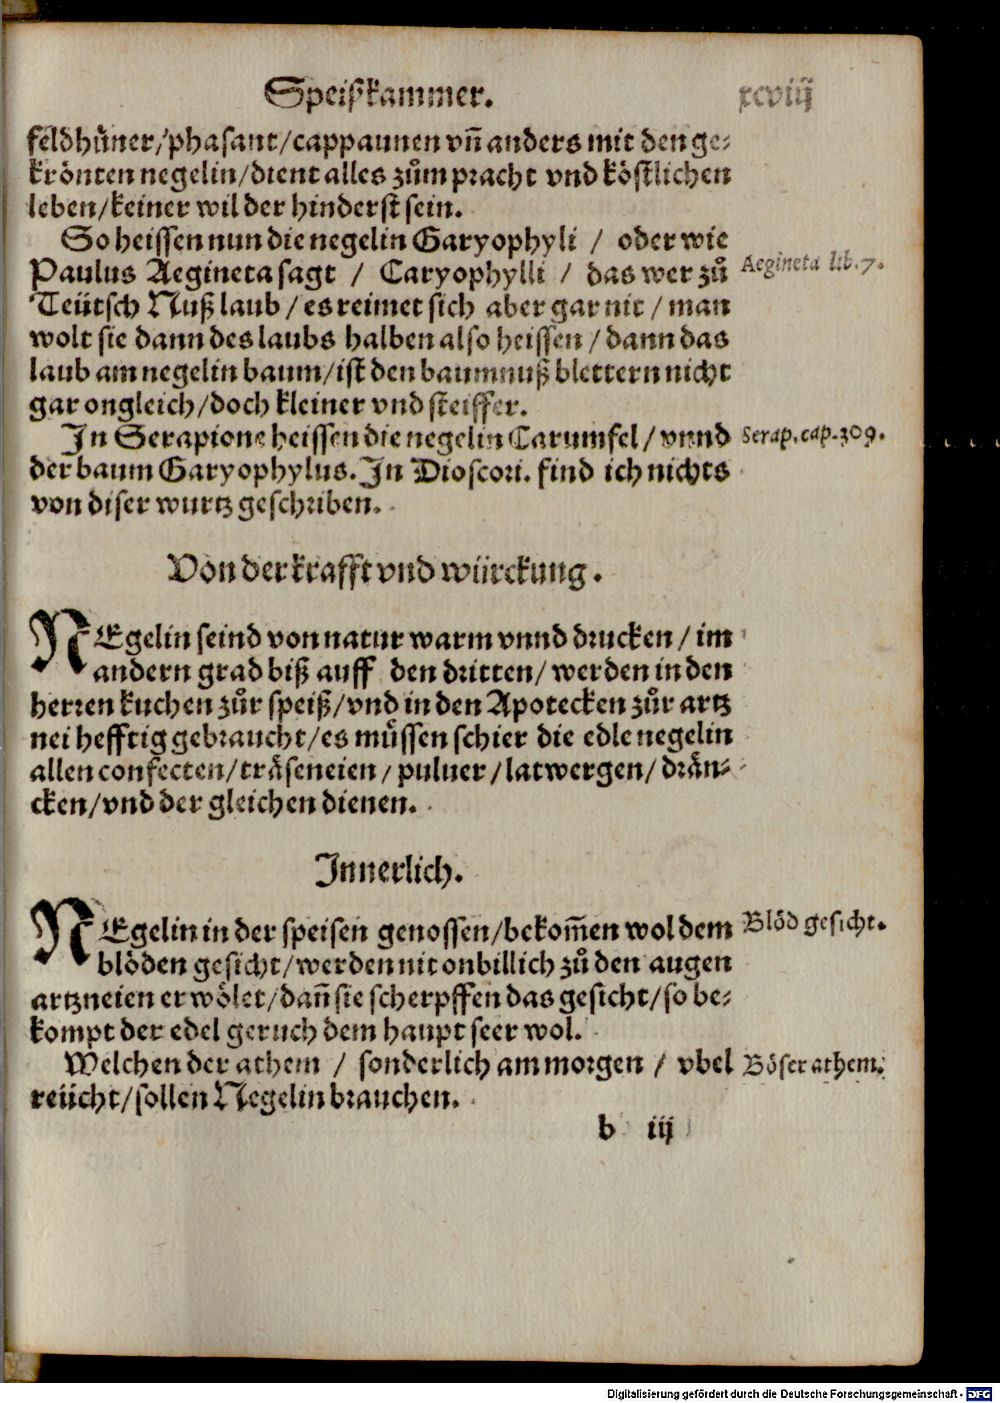 Speißkammer. xcviij
feldhůner/phasant/cappaunen vñ anders mit den ge-
krönten negelin/dient alles zům pracht vnd köstlichen
leben/keiner wil der hinderst sein.
So heissen nun die negelin Garyophyli / oder wie
Paulus Aegineta sagt / Caryophylli / das wer zů
Aegineta lib.7.
Teütsch Nußlaub / es reimet sich aber gar nit / man
wolt sie dann des laubs halben also heissen / dann das
laub am negelin baum/ist den baumnuß blettern nicht
gar ongleich/doch kleiner vnd steiffer.
In Serapione heissen die negelin Carumfel / vnnd
Serap.cap.309.
der baum Garyophylus. In Dioscori. find ich nichts
von diser wurtz geschriben.
Von der krafft vnd würckung.
NEgelin seind von natur warm vnnd drucken / im
andern grad biß auff den dritten/ werden in den
herren kuchen zůr speiß/vnd in den Apotecken zůr artz
nei hefftig gebraucht/es müssen schier die edle negelin
allen confecten/träseneien/puluer/latwergen/drän-
cken/vnd der gleichen dienen.
Innerlich.
NEgelin in der speisen genossen/bekom̄en wol dem
Blöd gesicht.
blöden gesicht/werden nit onbillich zů den augen
artzneien erwölet/dañ sie scherpffen das gesicht/so be-
kompt der edel geruch dem haupt seer wol.
Welchen der athem / sonderlich am morgen / vbel
Böser athem.
reücht/sollen Negelin brauchen.
b iij
Digitalisierung gefördert durch die Deutsche Forschungsgemeinschaft - DFG